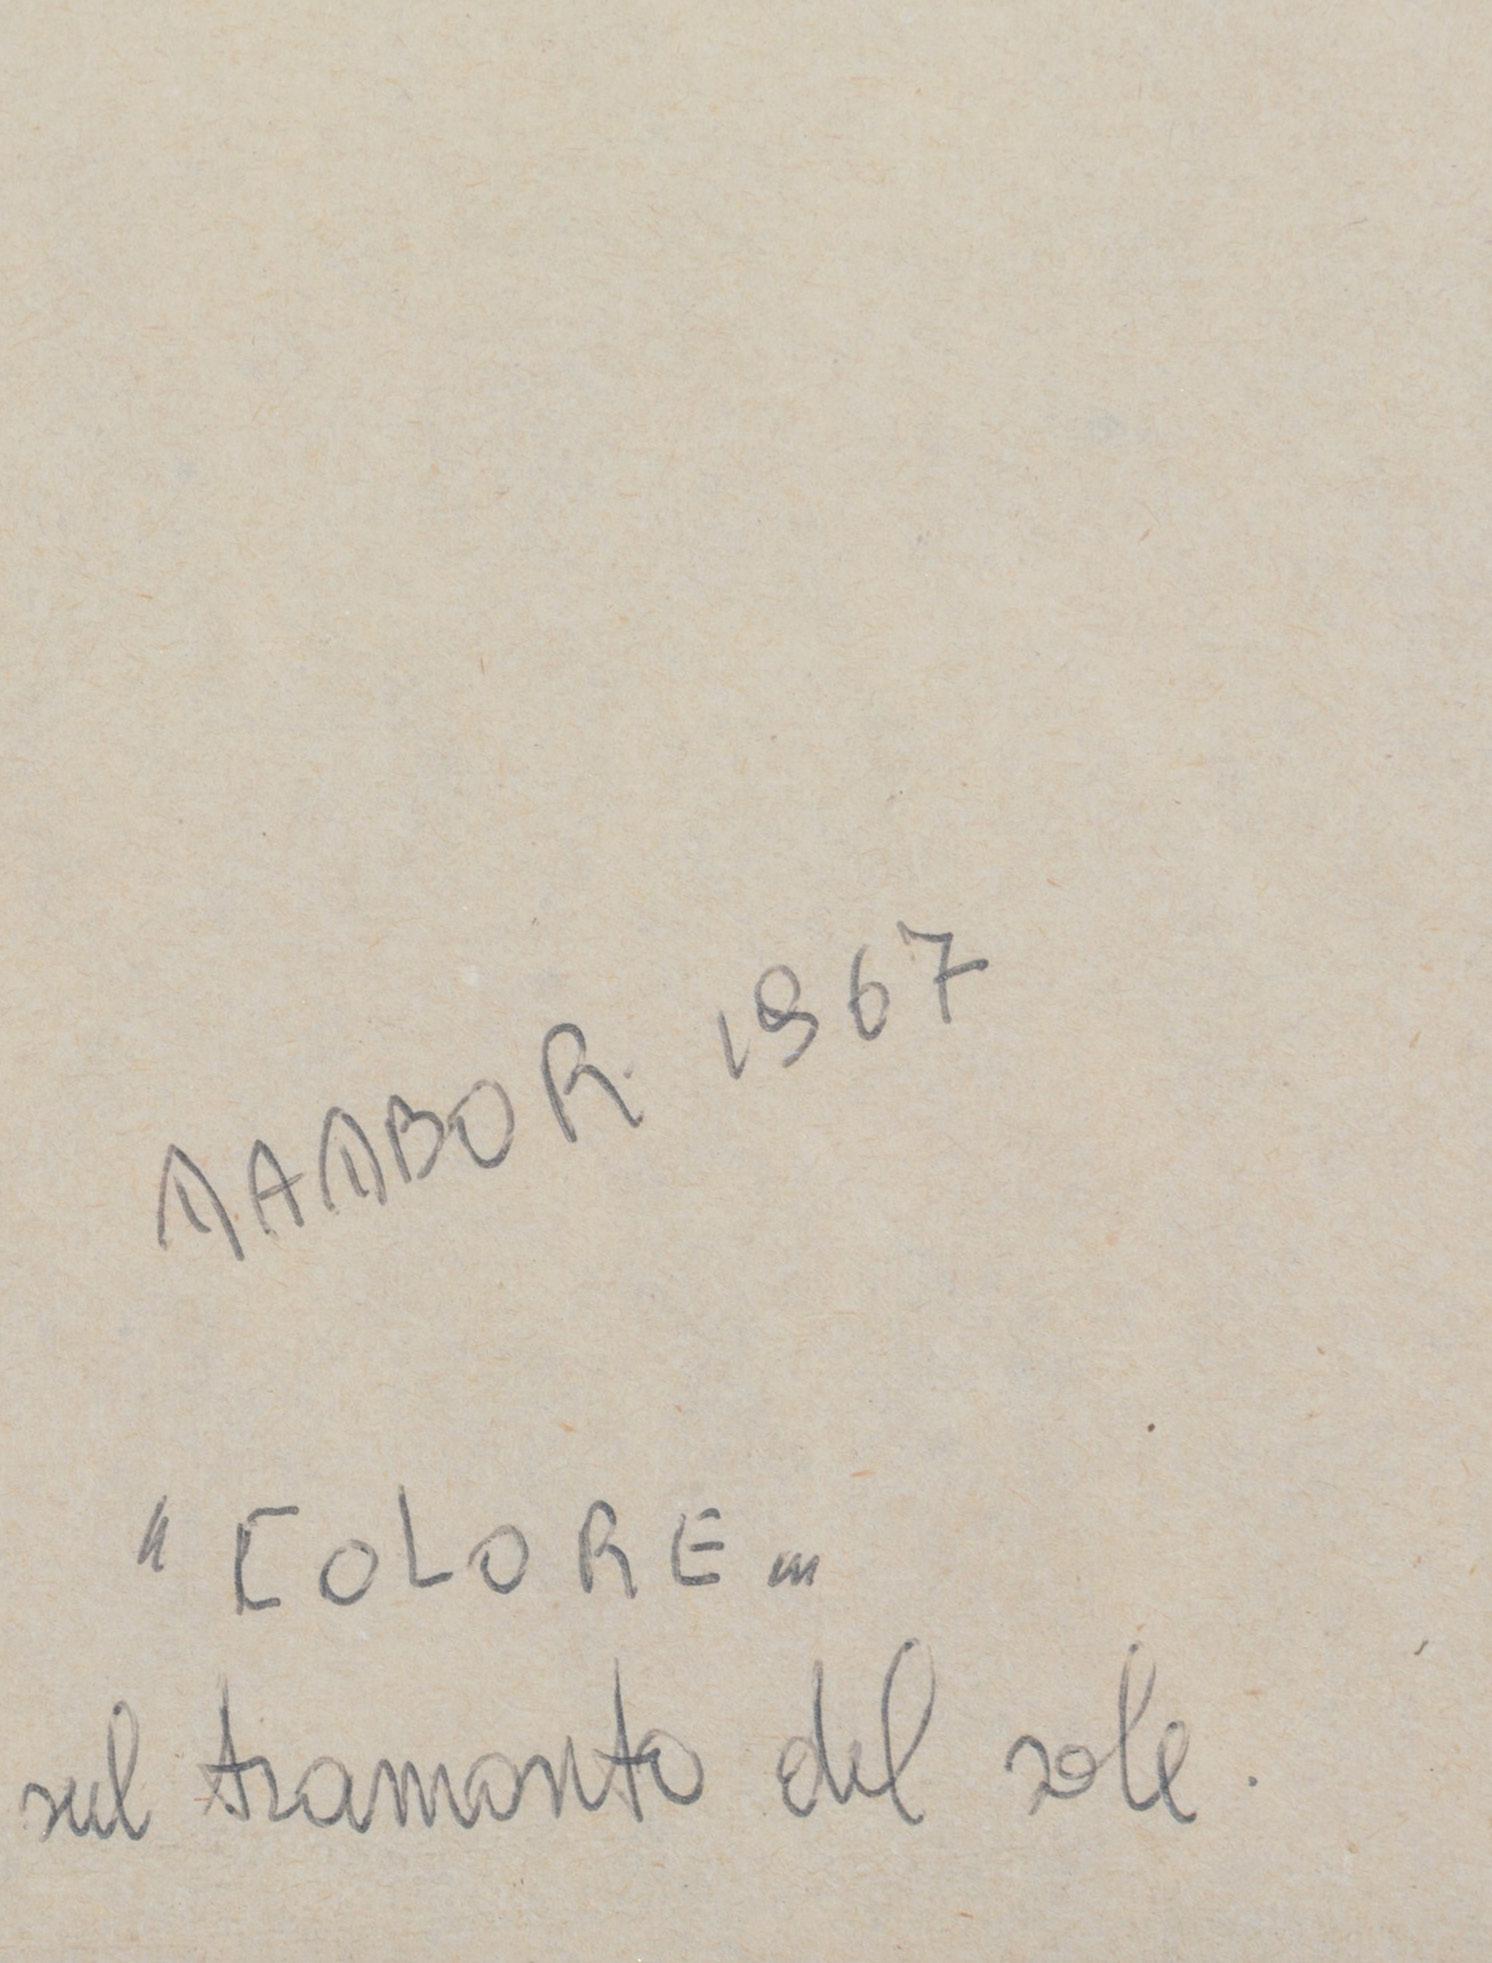 MAMBOR. 1967
"COLORE"
sul tramonto del sole.